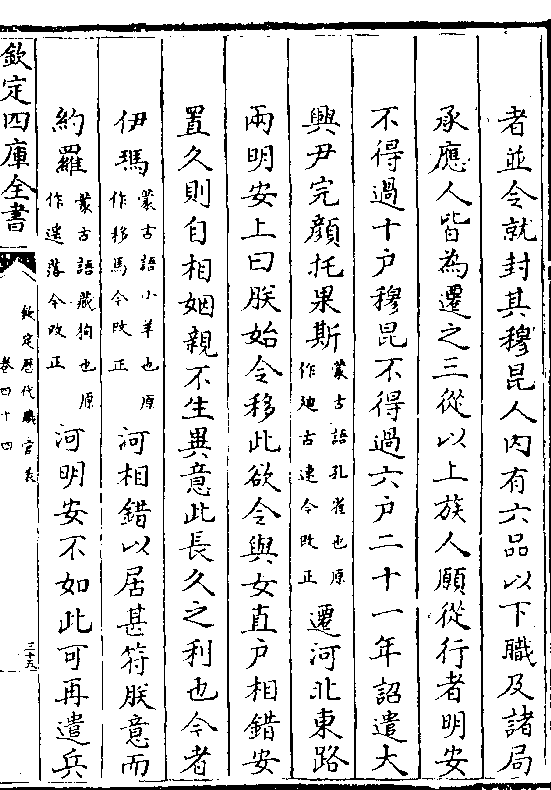 者並令就封其穆昆人内有六品以下職及諸局
承應人皆為遷之三從以上族人願從行者明安
不得過十户穆昆不得過六户二十一年詔遣大
興尹完顔托果斯蒙古語孔雀也原作迪古速今改正遷河北東路
兩明安上曰朕始令移此欲令與女直户相錯安
置久則自相姻親不生異意此長久之利也今者
伊瑪蒙古語小羊也原作移馬今改正河相錯以居甚符朕意而
約羅蒙古語藏狗也原作遥落今改正河明安不如此可再遣兵
欽定四庫全書
欽定歴代職官表
卷四十四
三十五